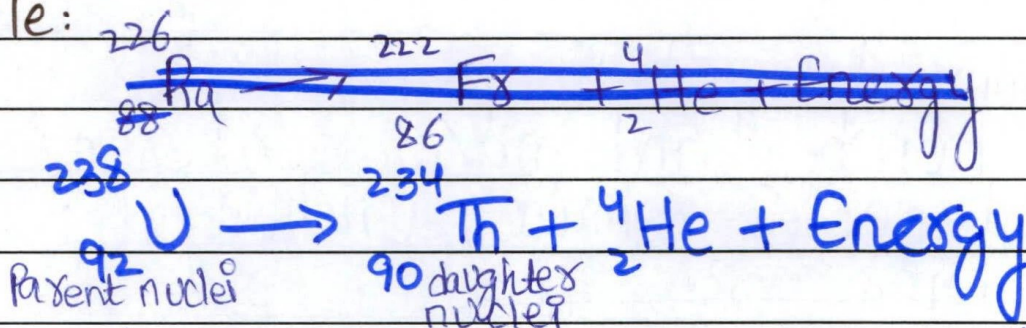 le:
²²⁶₈₈Ra → ²²²₈₆Fr + ⁴₂He + Energy
²³⁸₉₂U → ²³⁴₉₀Th + ⁴₂He + Energy
Parent nuclei daughter
nuclei